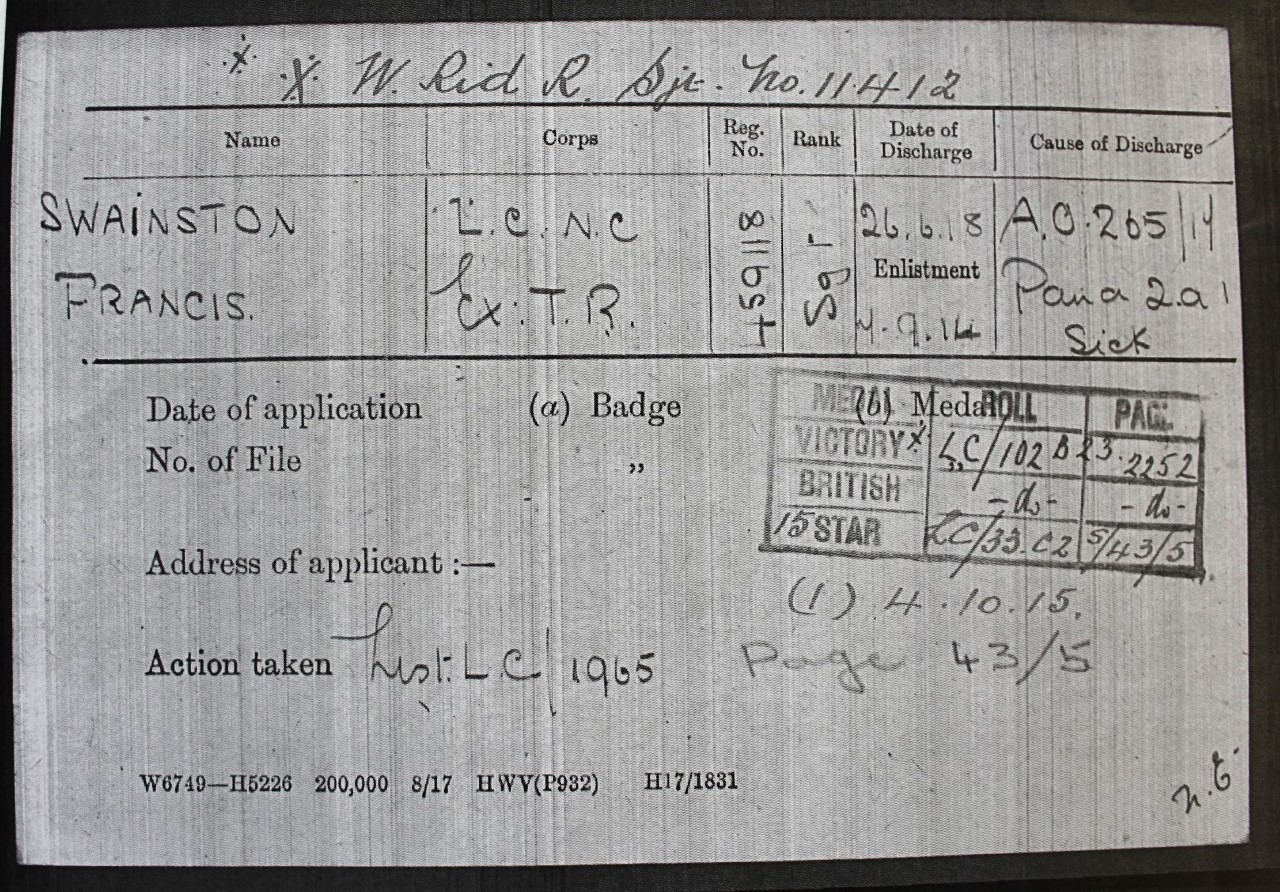 X. X. W. Rid R. Sjt. No. 11412
Name Corps Reg. No. Rank Date of Discharge Cause of Discharge
SWAINSTON L.C. N.C 459118 Sgt 26.6.18 A.O. 265/17
Enlistment
FRANCIS. Ex. T.R. 7.9.14 Para 2.a 1
Sick
Date of application (a) Badge (b) Medal
No. of File ,,
MEDAL ROLL PAGE
VICTORY X L.C/102 B23. 2252
BRITISH -do- -do-
15 STAR LC/33.C2 5/43/5
Address of applicant :—
(1) 4.10.15.
Action taken List: L.C/1965 Page 43/5
W6749—H5226 200,000 8/17 HWV(P932) H17/1831
n.E.